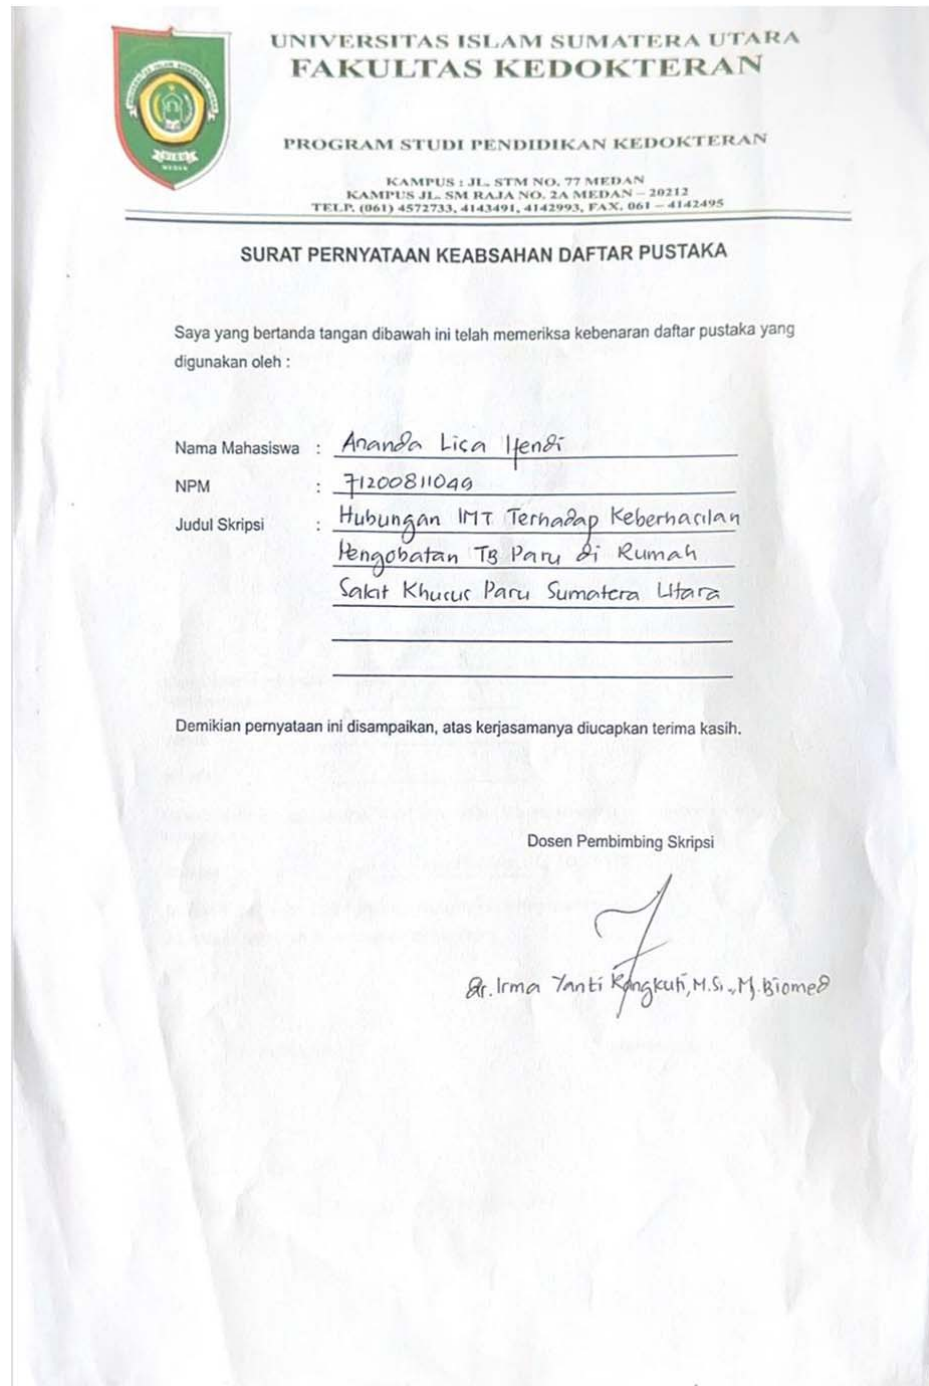 UNIVERSITAS ISLAM SUMATERA UTARA
FAKULTAS KEDOKTERAN
PROGRAM STUDI PENDIDIKAN KEDOKTERAN
KAMPUS : JL. STM NO. 77 MEDAN
KAMPUS JL. SM RAJA NO. 2A MEDAN – 20212
TELP. (061) 4572733, 4143491, 4142993, FAX. 061 – 4142495
SURAT PERNYATAAN KEABSAHAN DAFTAR PUSTAKA
Saya yang bertanda tangan dibawah ini telah memeriksa kebenaran daftar pustaka yang
digunakan oleh :
Nama Mahasiswa : Ananda Lica Hendi
NPM : 71200811049
Judul Skripsi : Hubungan IMT Terhadap Keberhasilan
Pengobatan TB Paru di Rumah
Sakit Khusus Paru Sumatera Utara
Demikian pernyataan ini disampaikan, atas kerjasamanya diucapkan terima kasih.
Dosen Pembimbing Skripsi
dr. Irma Yanti Rangkuti, M.Si., M.Biomed